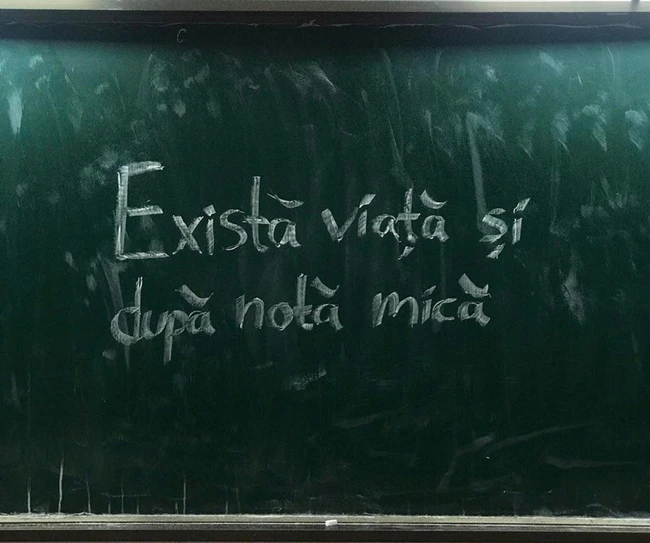 Există viață și
după notă mică